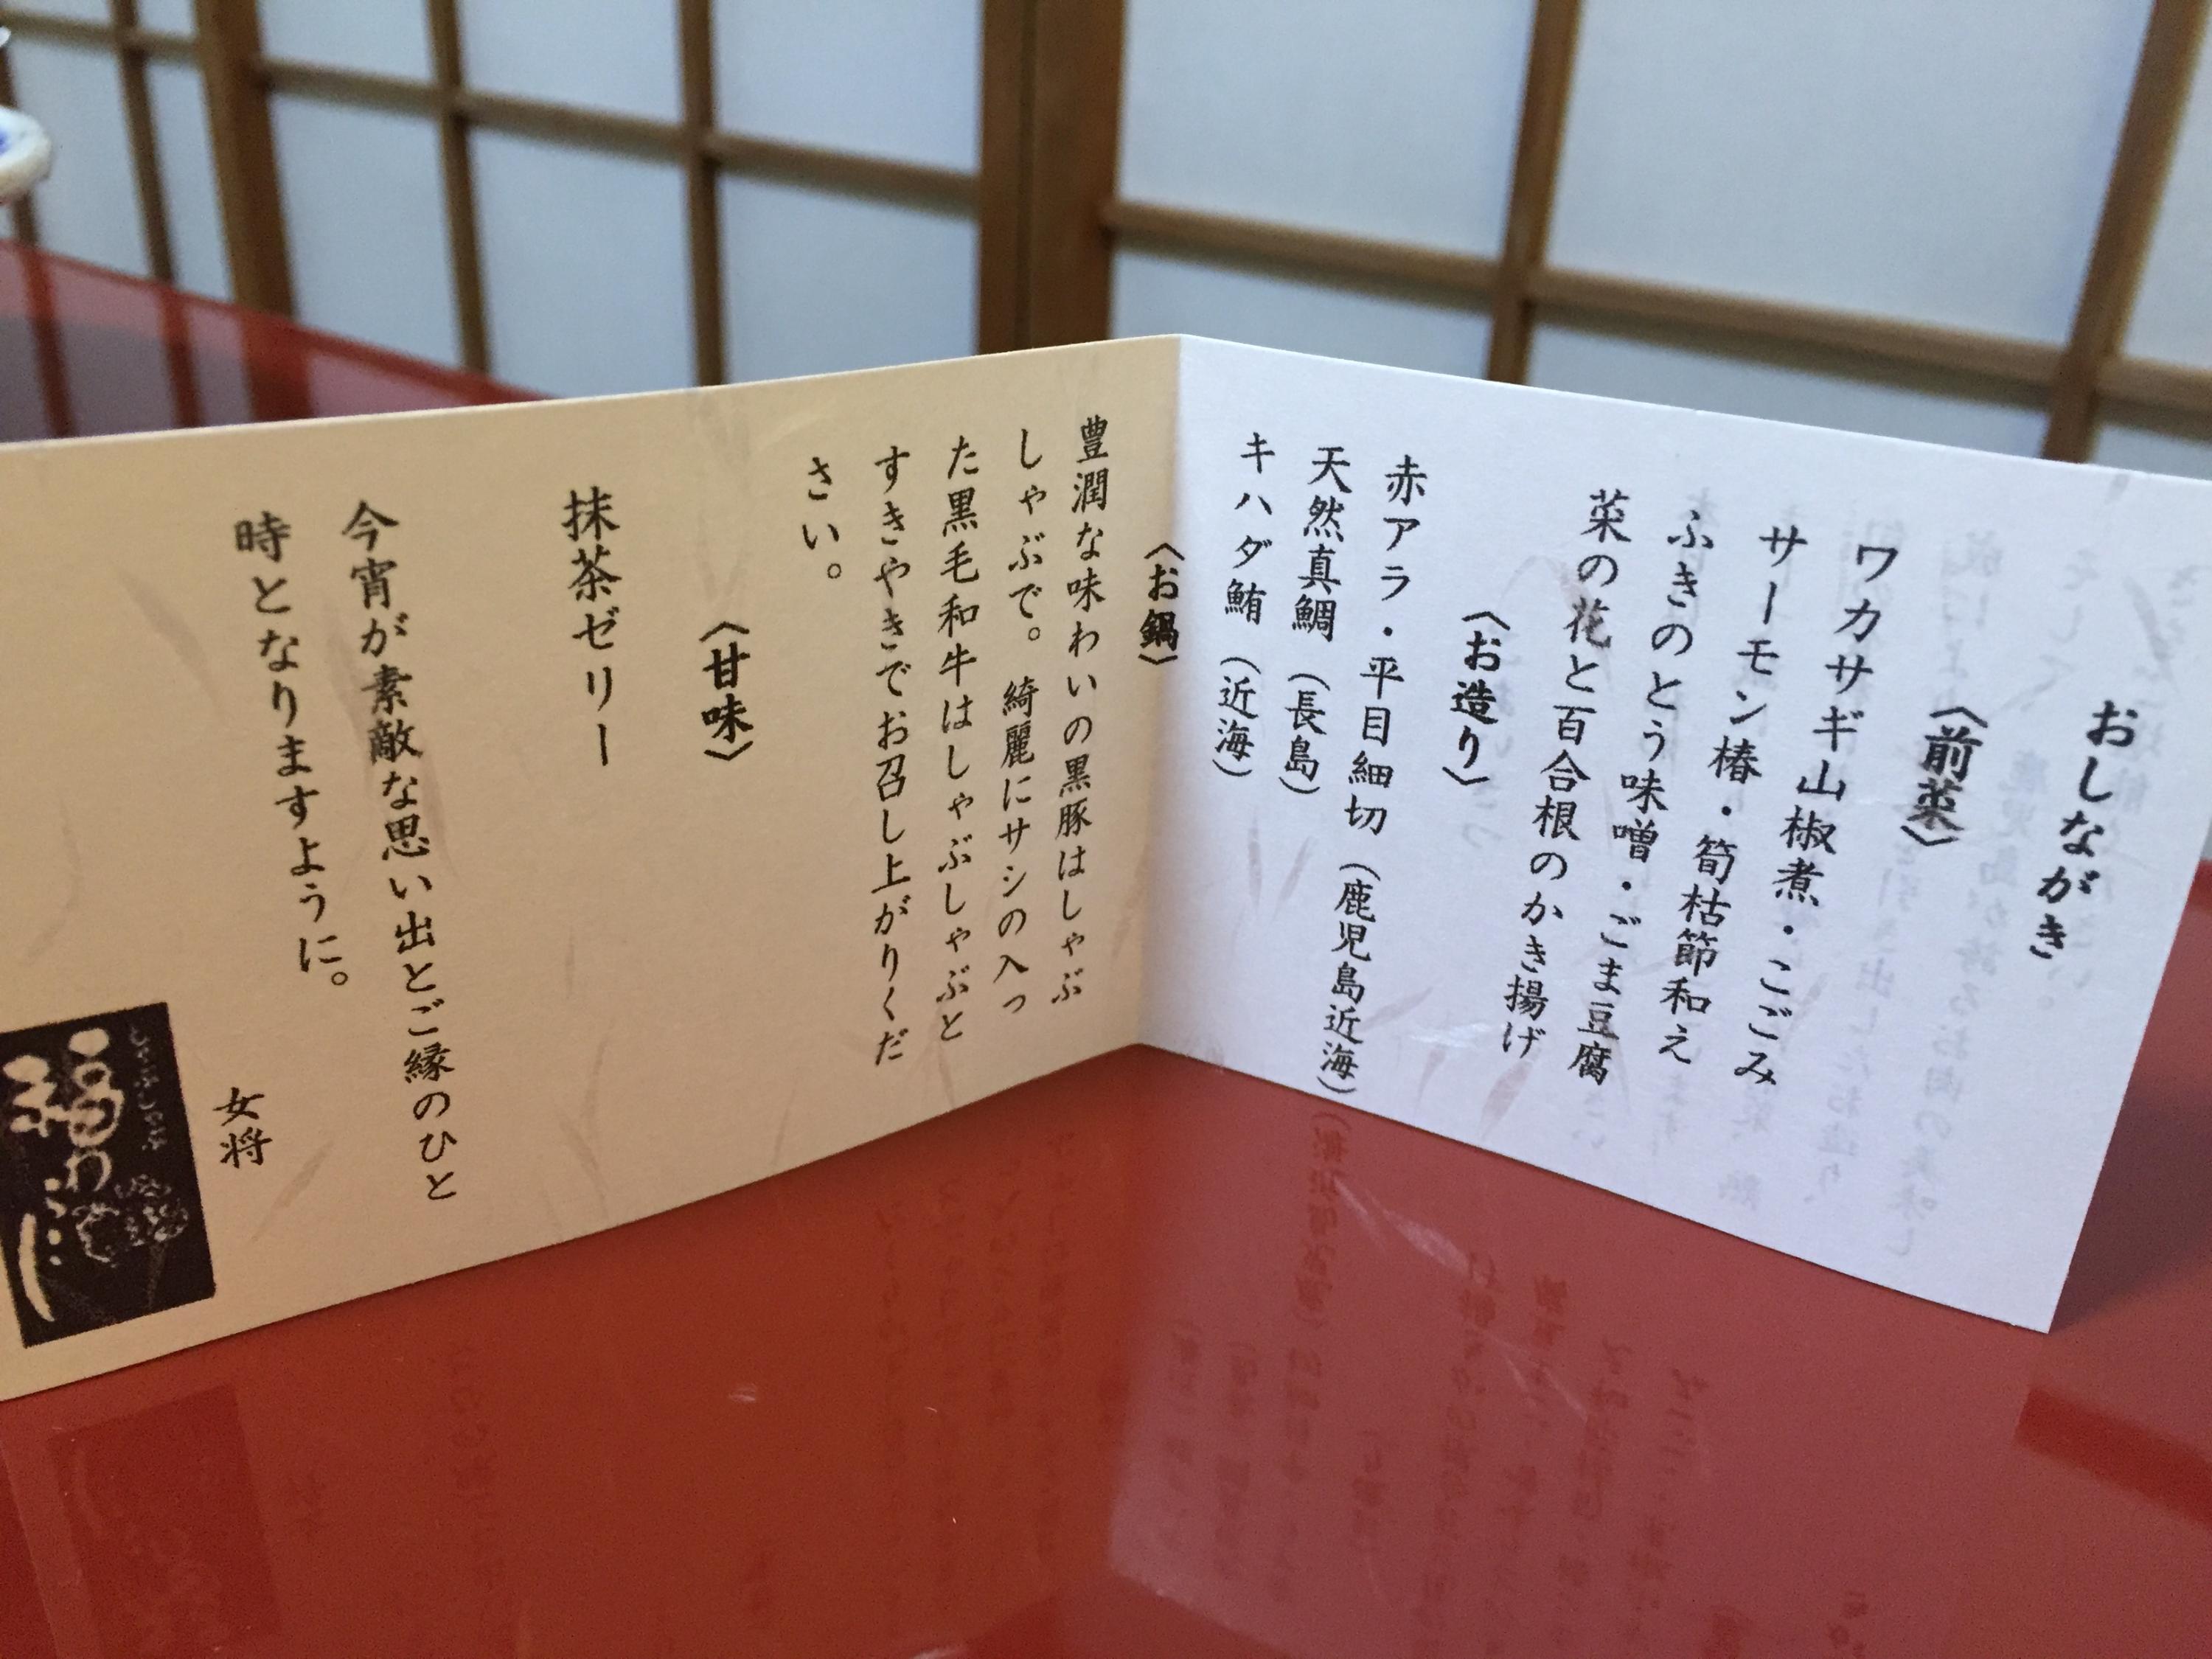 おしながき
〈前菜〉
ワカサギ山椒煮・こごみ
サーモン椿・筍枯節和え
ふきのとう味噌・ごま豆腐
菜の花と百合根のかき揚げ
〈お造り〉
赤アラ・平目細切（鹿児島近海）
天然真鯛（長島）
キハダ鮪（近海）
〈お鍋〉
豊潤な味わいの黒豚はしゃぶ
しゃぶで。綺麗にサシの入っ
た黒毛和牛はしゃぶしゃぶと
すきやきでお召し上がりくだ
さい。
〈甘味〉
抹茶ゼリー
今宵が素敵な思い出とご縁のひと
時となりますように。
女将
しゃぶしゃぶ